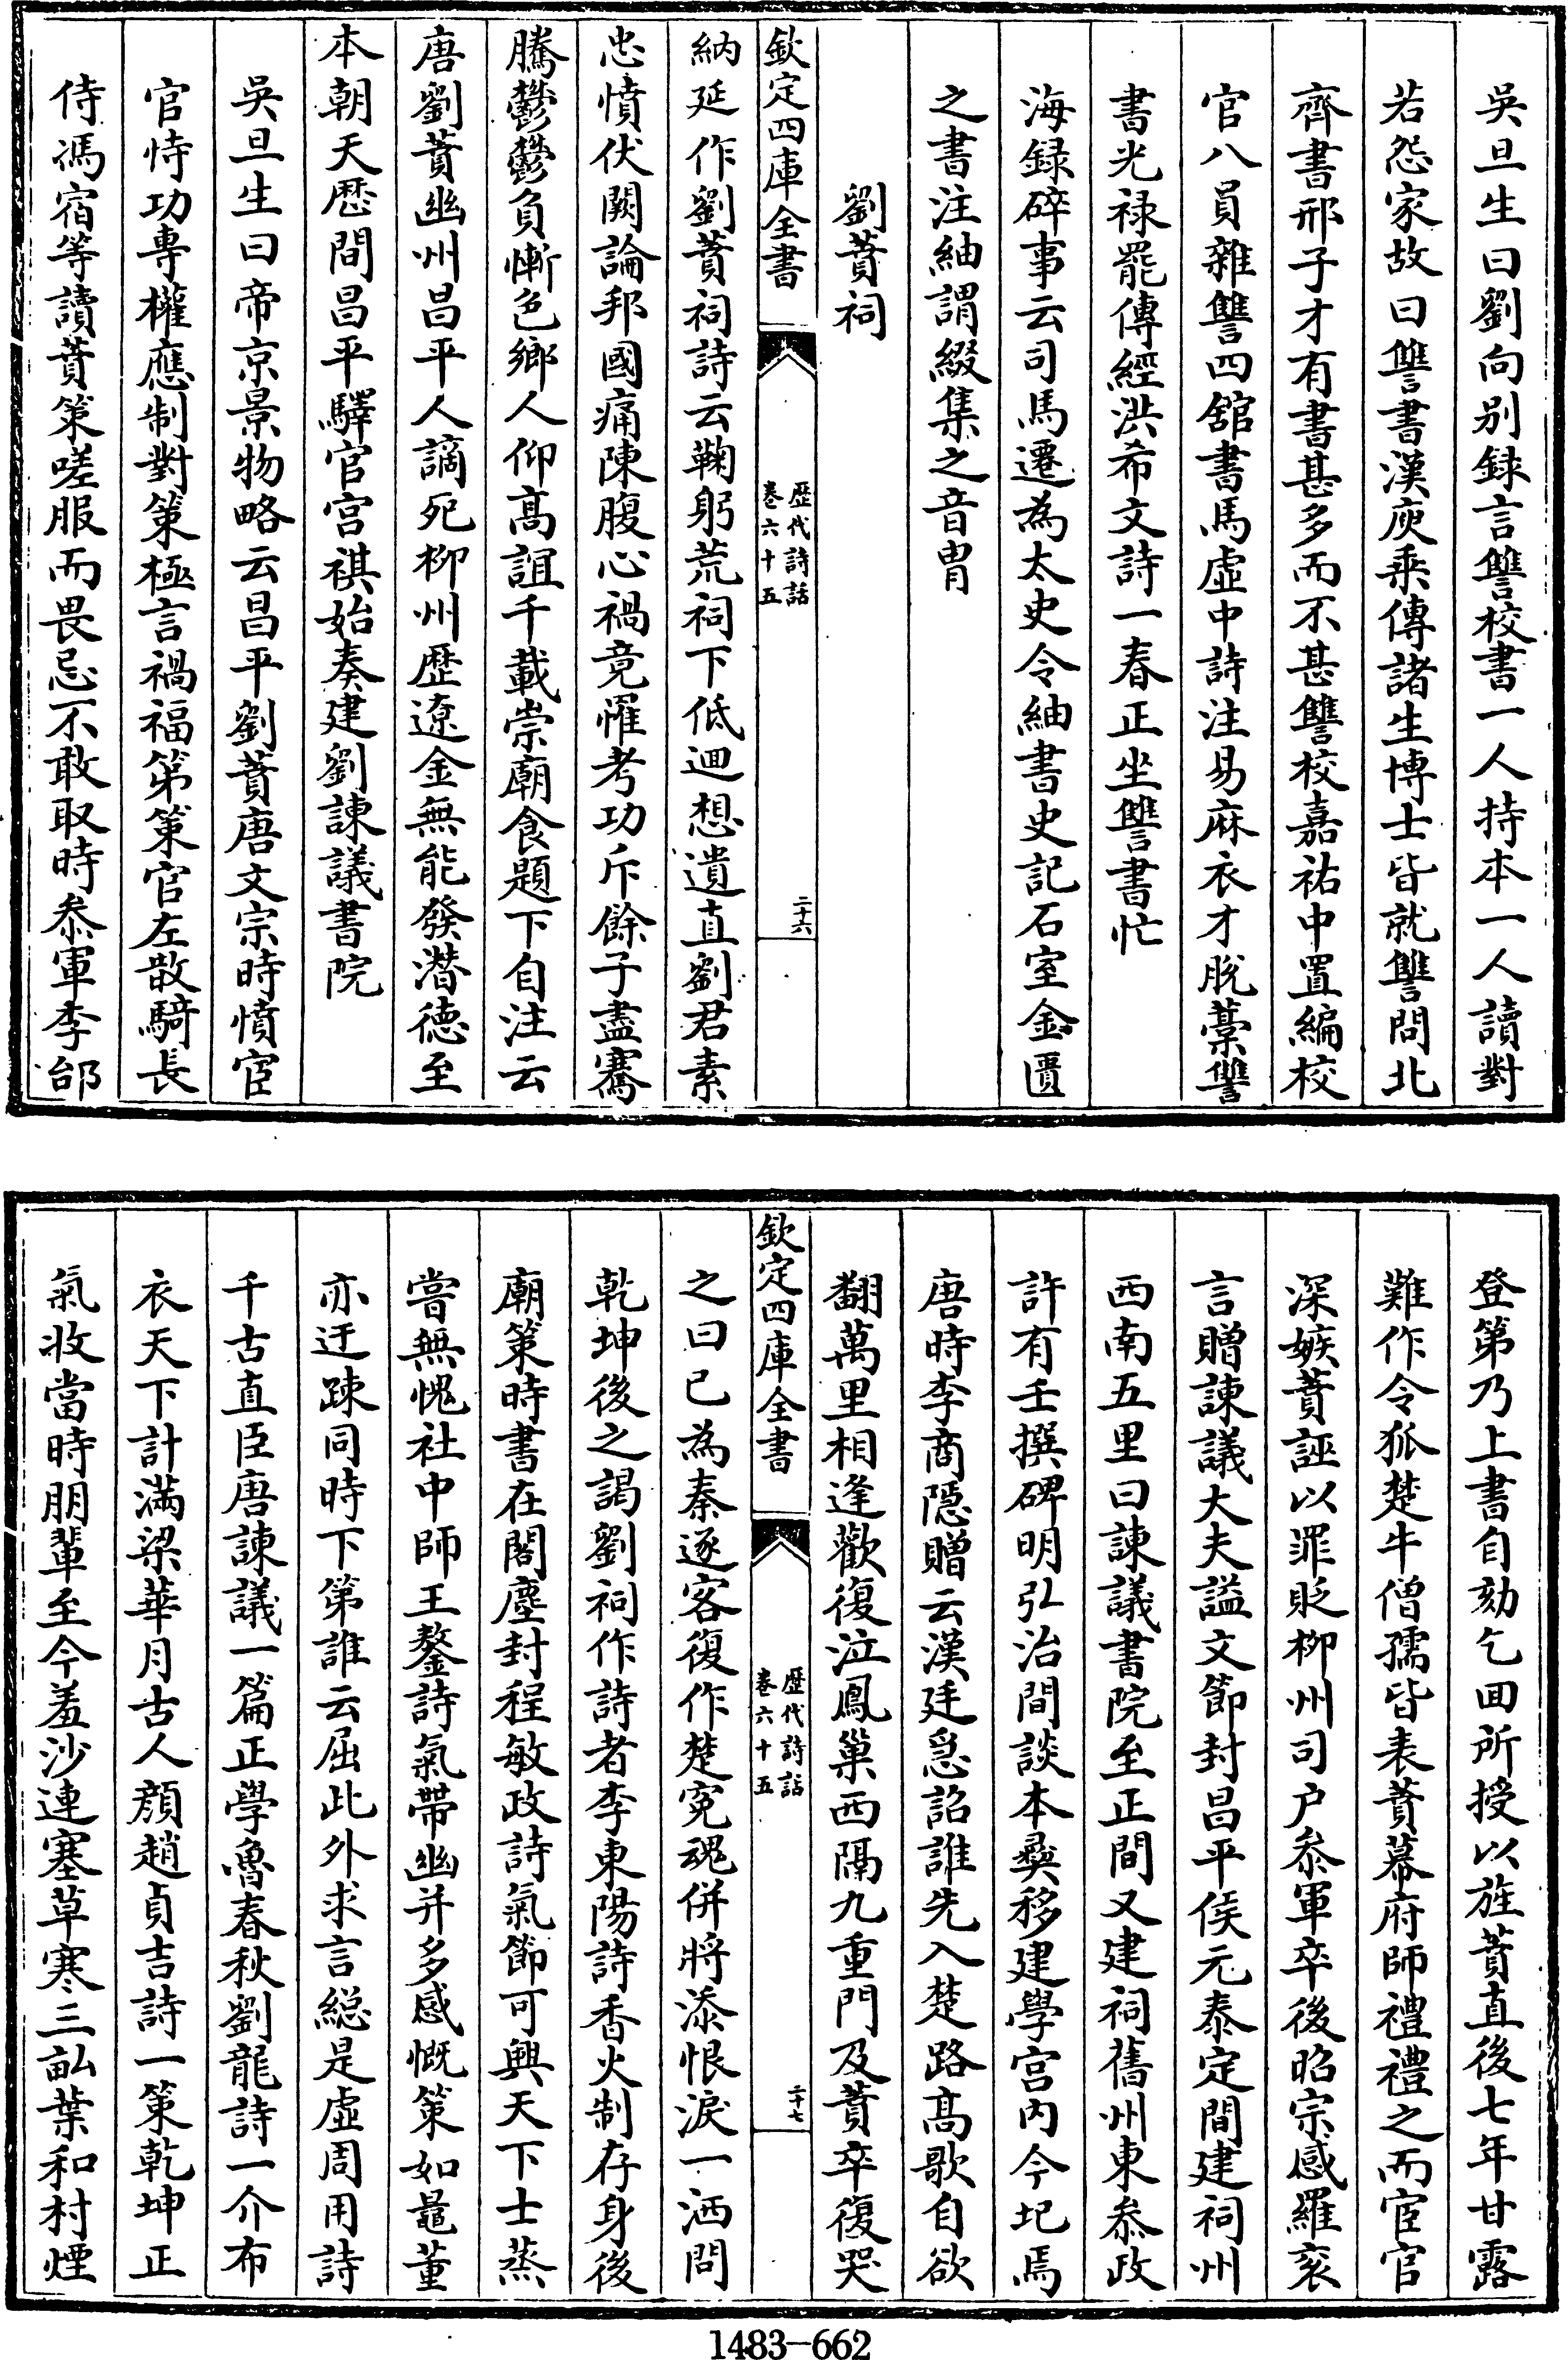 吳旦生曰劉向别録言讐校書一人持本一人讀對
若怨家故曰讐書漢庾乘傳諸生博士皆就讐問北
齊書邢子才有書甚多而不甚讐校嘉祐中置編校
官八員雜讐四舘書馬虛中詩注易麻衣才脫藁讐
書光祿罷傳經洪希文詩一春正坐讐書忙
海録碎事云司馬遷為太史令紬書史記石室金匱
之書注紬謂綴集之音胄
劉蕡祠
欽定四庫全書
歴代詩話
卷六十五
二十六
納延作劉蕡祠詩云鞠躬荒祠下低迴想遺直劉君素
忠憤伏闕論邦國痛陳腹心禍竟罹考功斥餘子盡騫
騰鬱鬱負慚色鄉人仰髙誼千載崇廟食題下自注云
唐劉蕡幽州昌平人謫死柳州歴遼金無能發潛徳至
本朝天厯間昌平驛官宫祺始奏建劉諫議書院
吳旦生曰帝京景物略云昌平劉蕡唐文宗時憤宦
官恃功專權應制對策極言禍福第策官左散騎長
侍馮宿等讀蕡策嗟服而畏忌不敢取時叅軍李郃
登第乃上書自劾乞回所授以旌蕡直後七年甘露
難作令狐楚牛僧孺皆表蕡幕府師禮禮之而宦官
深嫉蕡誣以罪貶柳州司户叅軍卒後昭宗感羅衮
言贈諫議大夫謚文節封昌平侯元泰定間建祠州
西南五里曰諫議書院至正間又建祠舊州東叅政
許有壬撰碑明弘治間談本彜移建學宫内今圮焉
唐時李商隠贈云漢廷急詔誰先入楚路髙歌自欲
翻萬里相逢歡復泣鳳巢西隔九重門及蕡卒復哭
欽定四庫全書
歴代詩話
卷六十五
二十七
之曰已為秦逐客復作楚寃魂併將添恨淚一洒問
乾坤後之謁劉祠作詩者李東陽詩香火制存身後
廟策時書在閣塵封程敏政詩氣節可興天下士蒸
嘗無愧社中師王鏊詩氣帶幽并多感慨策如鼂董
亦迂踈同時下第誰云屈此外求言縂是虛周用詩
千古直臣唐諫議一篇正學魯春秋劉龍詩一介布
衣天下計滿梁華月古人顔趙貞吉詩一策乾坤正
氣收當時朋輩至今羞沙連塞草寒三畆葉和村煙
1483-662